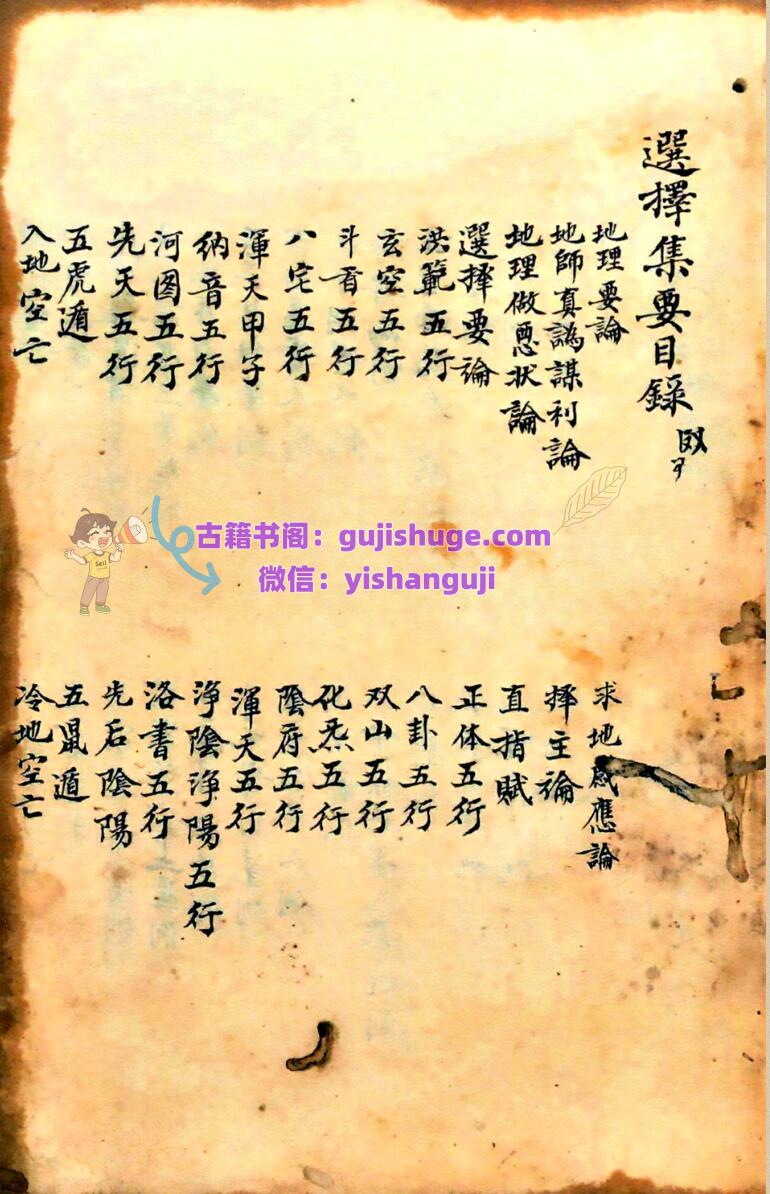 選擇集要目錄
地理要論
求地感應論
地師真譌謀利論
擇主論
地理做惡状論
直指賦
選擇要論
正体五行
洪範五行
八卦五行
玄空五行
双山五行
斗首五行
化炁五行
八宅五行
陰府五行
渾天甲子
渾天五行
納音五行
浄陰浄陽五行
河图五行
洛書五行
先天五行
先后陰陽
五虎遁
五鼠遁
入地空亡
冷地空亡
古籍书阁：gujishuge.com
微信：yishanguji